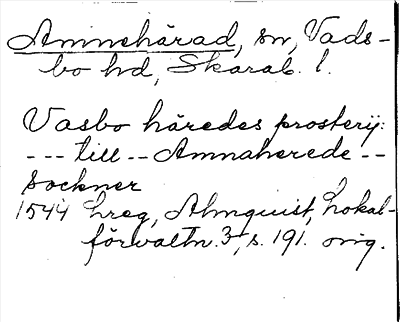 Amnehärad, sn, Vads-
bo hd, Skarab. l.
Vasbo häredes prosterij:
--- till -- Amnaherede --
sockner
1544 Lreg, Almquist, Lokal-
förvaltn. 3, s. 191. orig.